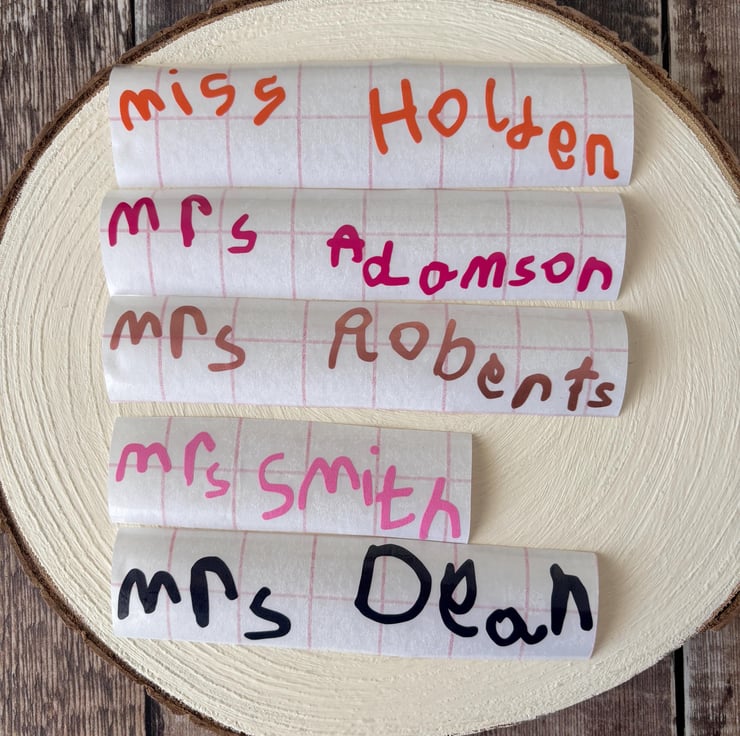 miss Holden
mrs Adamson
mrs Roberts
mrs Smith
mrs Dean